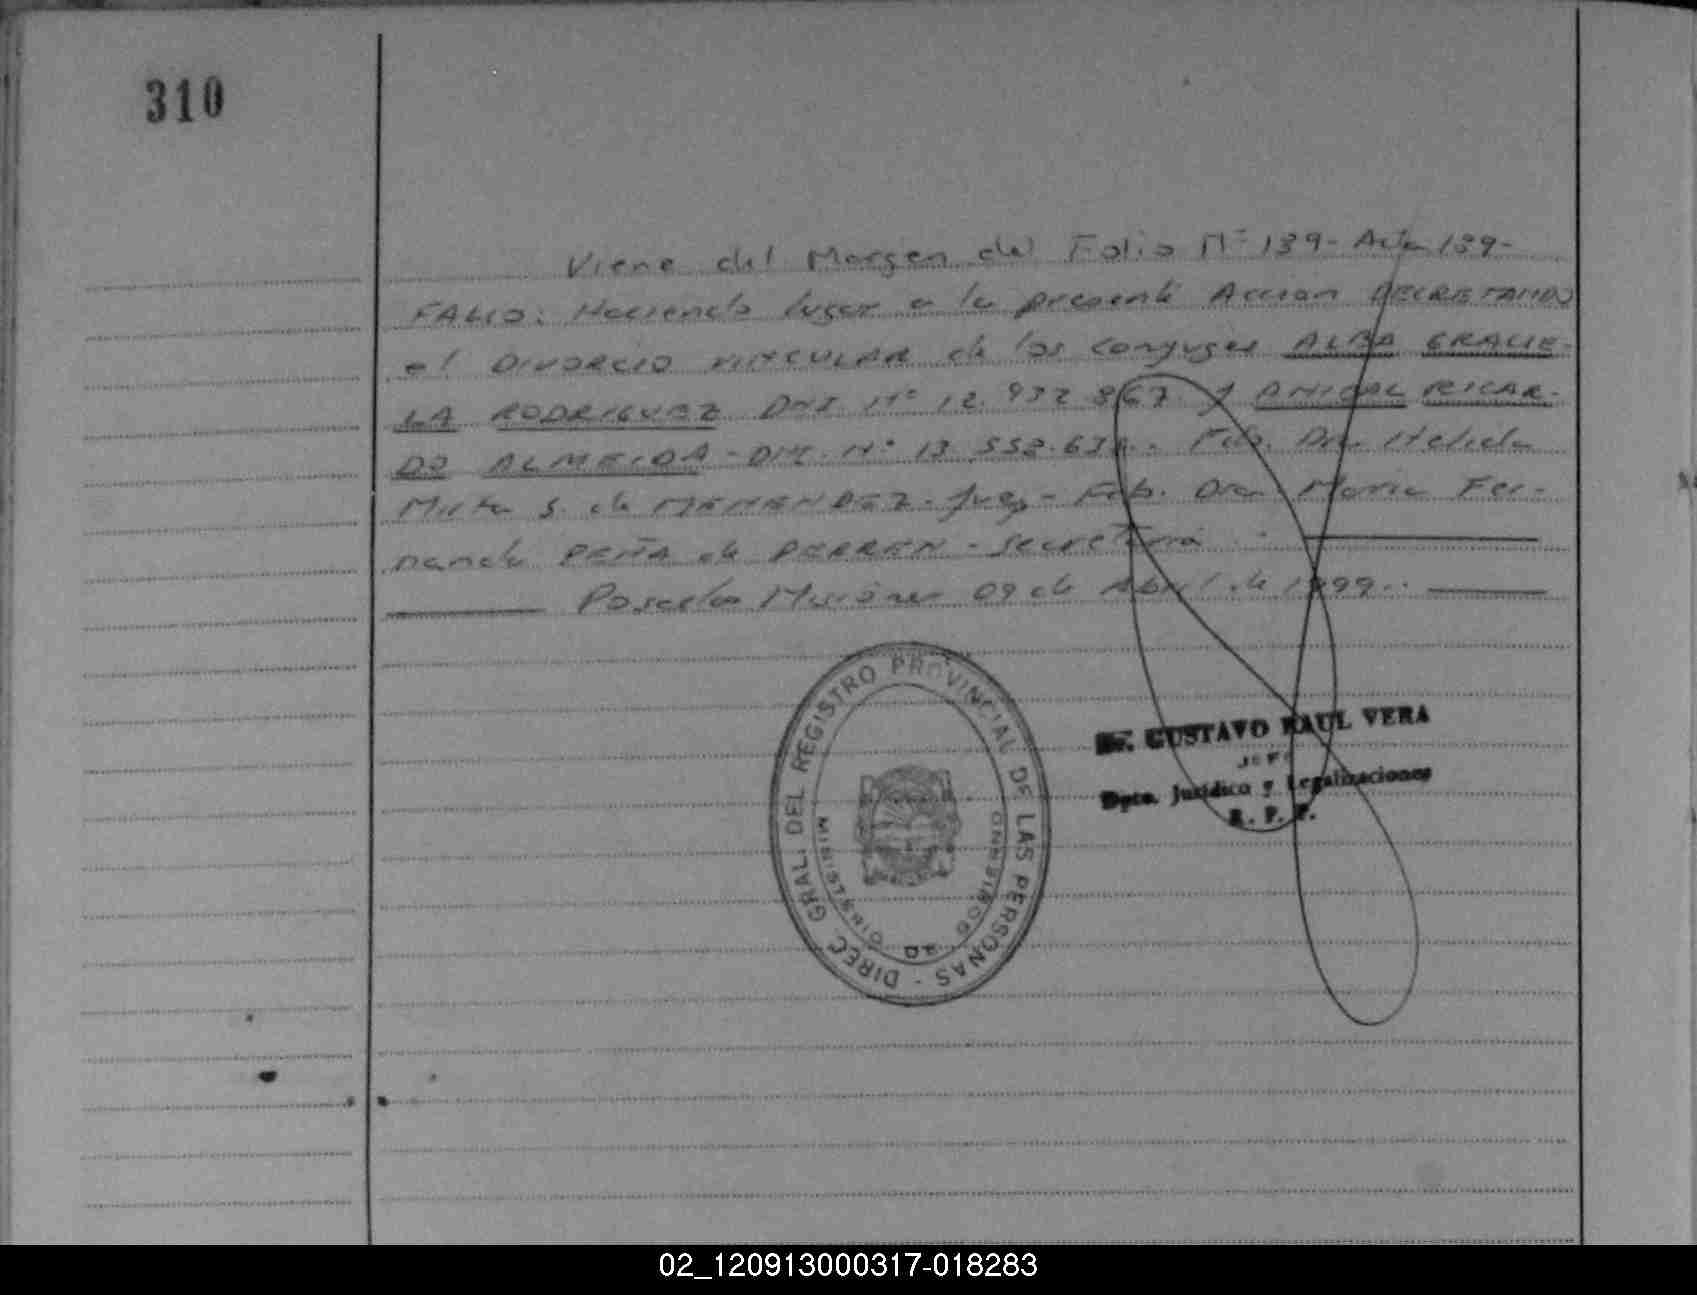 310
Viene del Margen del Folio Nº 139- Acta 139-
FALLO: Haciendo lugar a la presente Accion DECRETANDO
el DIVORCIO VINCULAR de los conyuges ALBA GRACIE-
LA RODRIGUEZ DNI Nº 12.932.867 y ANIBAL RICAR-
DO ALMEIDA - DNI. Nº 13.552. Fdo. Dra
Mirta S. de MENENDEZ - Juez - Fdo. Dra Maria Fer-
nanda PEÑA de PERREN - Secretaria
Posadas Misiones 09 de Abril de 1999.
DIREC. GRAL. DEL REGISTRO PROVINCIAL DE LAS PERSONAS -
MINISTERIO DE GOBIERNO
Dr. GUSTAVO RAUL VERA
JEFE
Dpto. Jurídico y Legalizaciones
R. P. P.
02_120913000317-018283